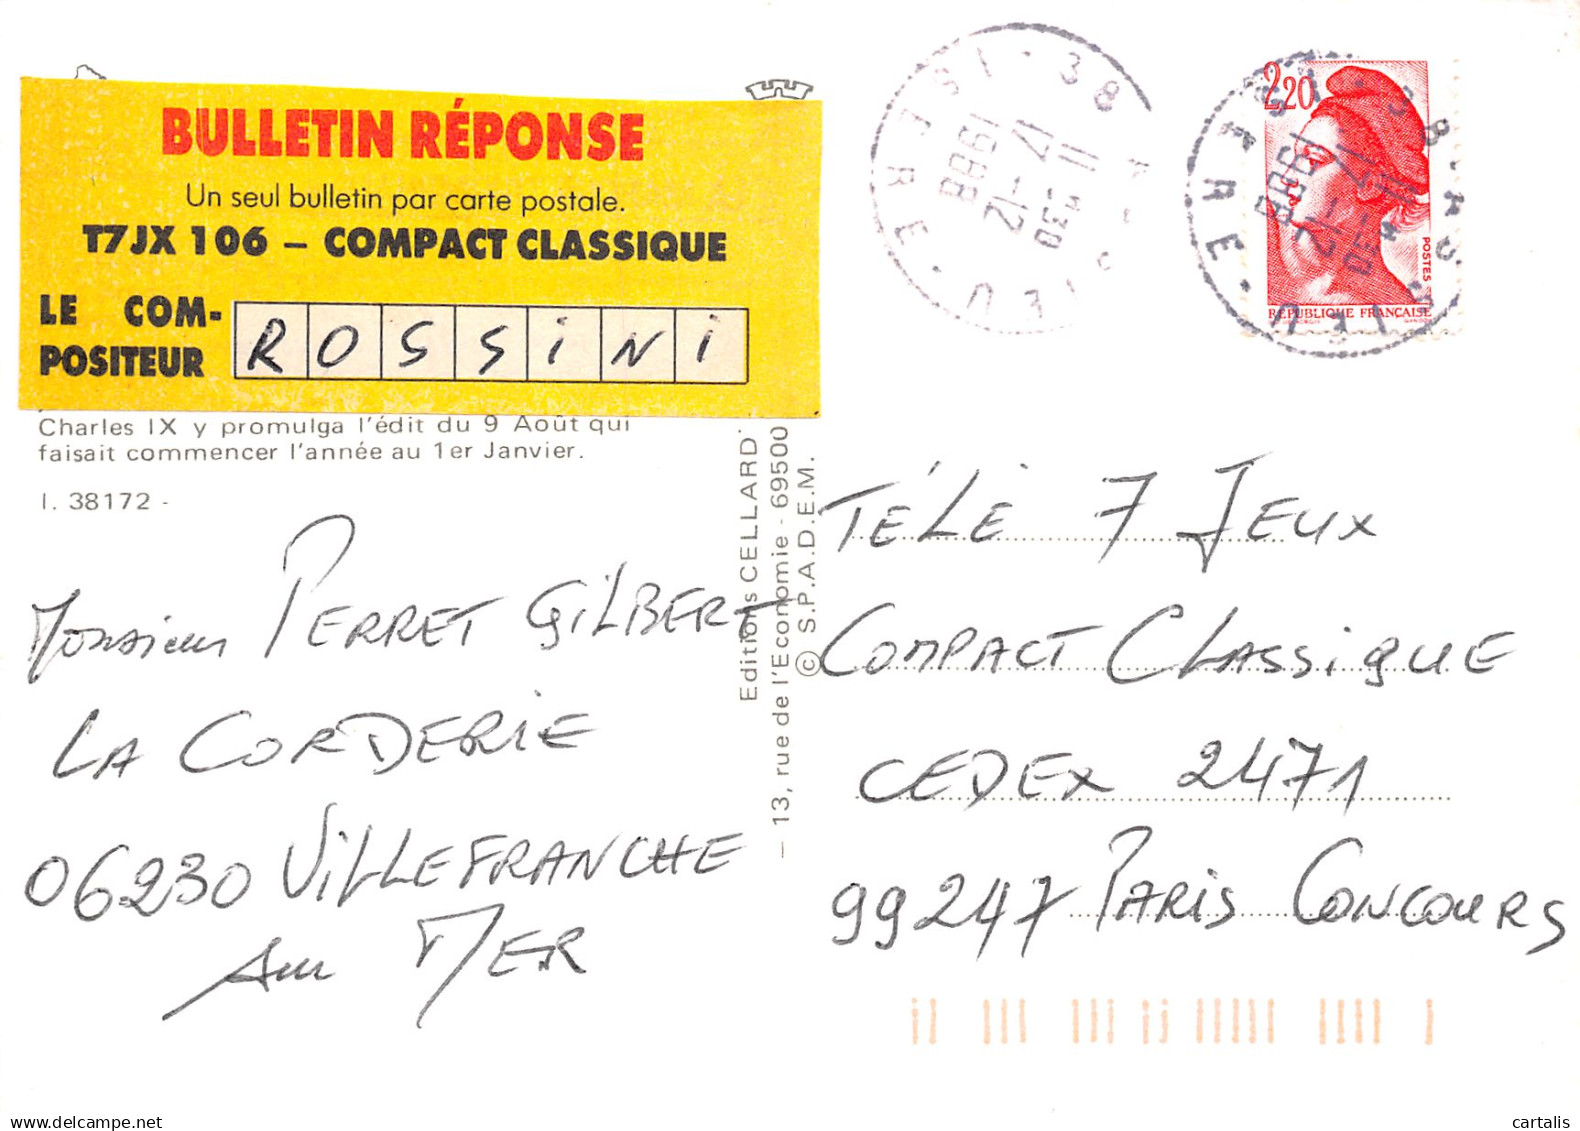 BULLETIN RÉPONSE
Un seul bulletin par carte postale.
T7JX 106 – COMPACT CLASSIQUE
LE COM-
POSITEUR
ROSSiNi
Charles IX y promulga l'édit du 9 Août qui
faisait commencer l'année au 1er Janvier.
I. 38172 -
Monsieur PERRET GiLBERT
LA CORDERiE
06230 ViLLEFRANCHE
sur MER
Editions CELLARD
— 13, rue de l'Economie - 69500
© S.P.A.D.E.M.
38
ISERE
17 -12
1988
2,20
POSTES
RÉPUBLIQUE FRANÇAISE
38
ISERE
17 -12
1988
TÉLÉ 7 JEUX
COMPACT CLASSiQUE
CEDEX 2471
99247 PARiS CONCOURS
cartalis